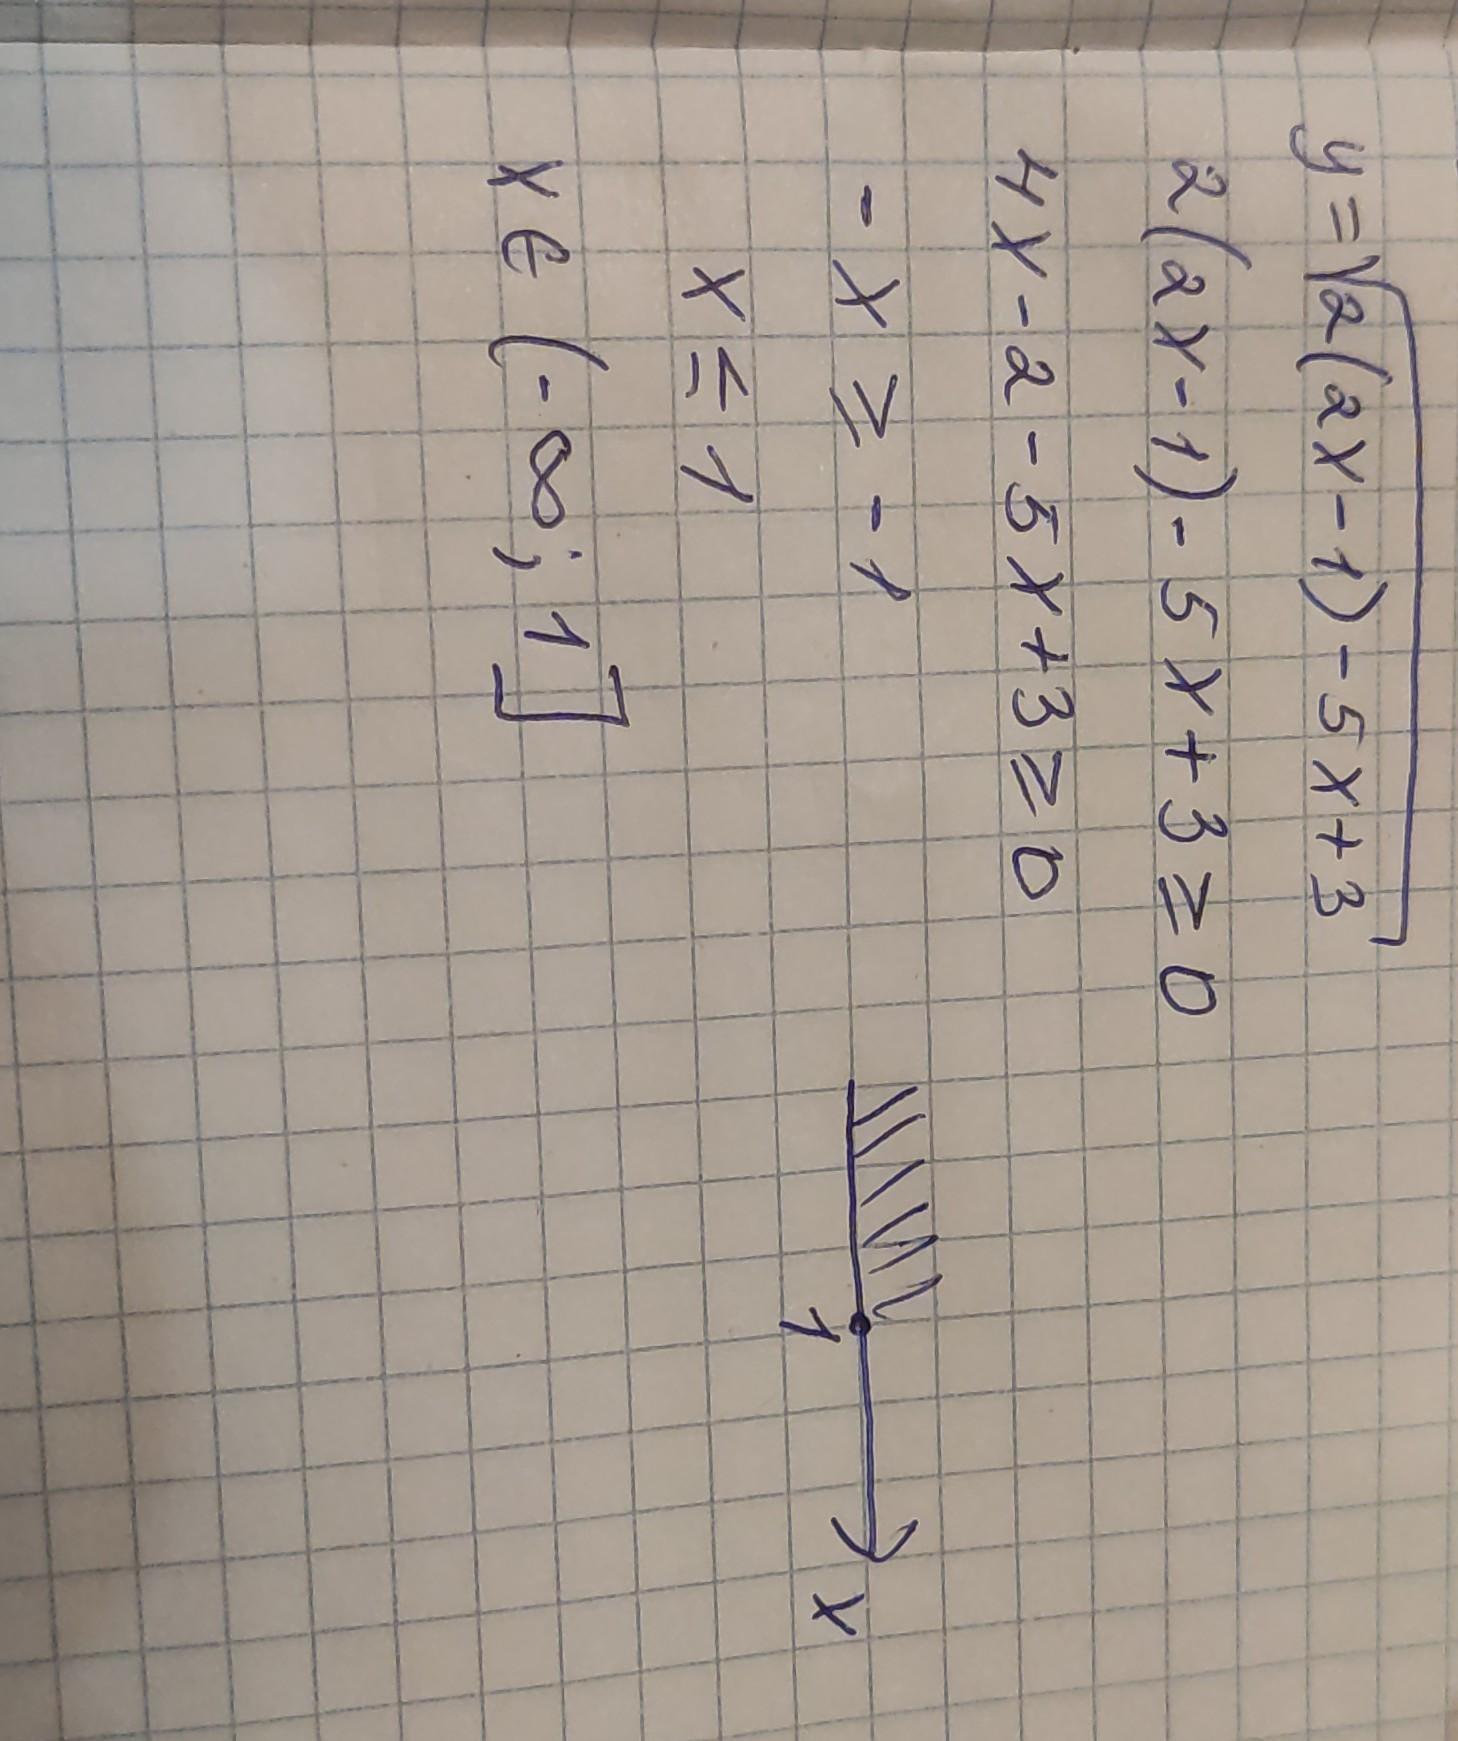 y = √2(2x-1)-5x+3
2(2x-1)-5x+3≥0
4x-2-5x+3≥0
-x ≥ -1
x ≤ 1
x ∈ (-∞; 1]
1
x